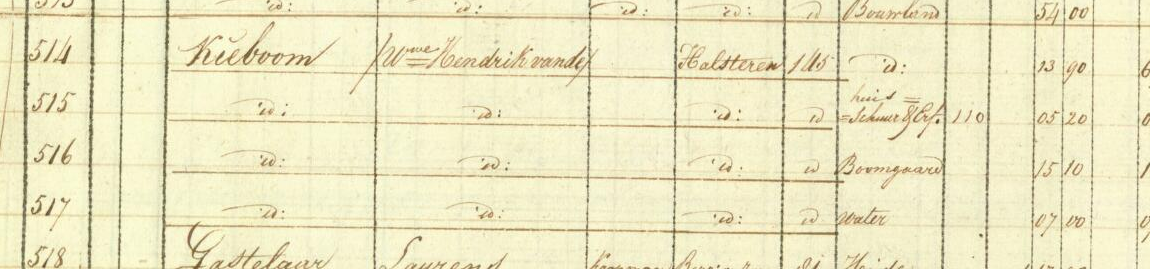 id: id: id: id: id Bouwland 54 00
514 Kieboom /Wwe Hendrik vande/ Halsteren 145 id: 13 90
515 id: id: id: id huis = Schuur & Erf. 110 05 20
516 id: id: id: id Boomgaard 15 10
517 id: id: id: id water 07 00
518 Gastelaar Laurens 81 Heide